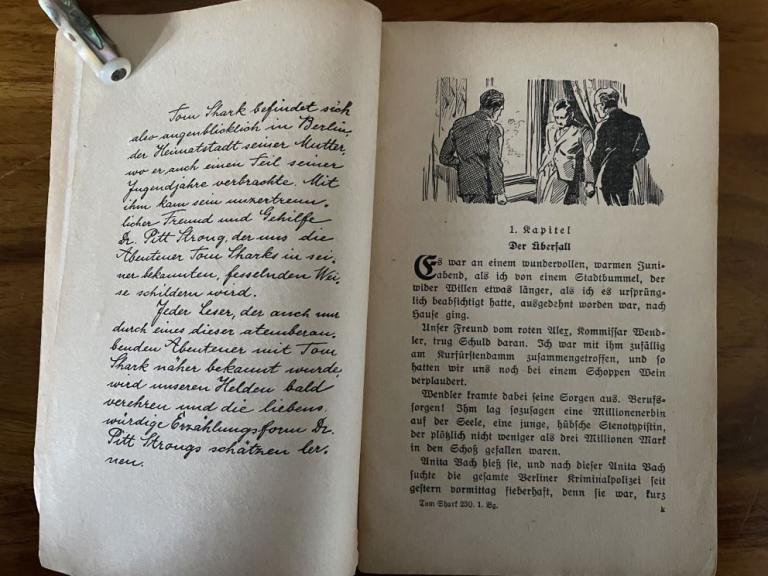 Tom Shark befindet sich
also augenblicklich in Berlin,
der Heimatstadt seiner Mutter,
wo er auch einen Teil seiner
Jugendjahre verbrachte. Mit
ihm kam sein unzertrenn-
licher Freund und Gehilfe
Dr. Pitt Strong, der uns die
Abenteuer Tom Sharks in sei-
ner bekannten, fesselnden Wei-
se schildern wird.
Jeder Leser, der auch nur
durch eines dieser atemberau-
benden Abenteuer mit Tom
Shark näher bekannt wurde,
wird unseren Helden bald
verehren und die liebens-
würdige Erzählungsform Dr.
Pitt Strongs schätzen ler-
nen.
1. Kapitel
Der Überfall
Es war an einem wundervollen, warmen Juni-
abend, als ich von einem Stadtbummel, der
wider Willen etwas länger, als ich es ursprüng-
lich beabsichtigt hatte, ausgedehnt worden war, nach
Hause ging.
Unser Freund vom roten Alex, Kommissar Wend-
ler, trug Schuld daran. Ich war mit ihm zufällig
am Kurfürstendamm zusammengetroffen, und so
hatten wir uns noch bei einem Schoppen Wein
verplaudert.
Wendler kramte dabei seine Sorgen aus. Berufs-
sorgen! Ihm lag sozusagen eine Millionenerbin
auf der Seele, eine junge, hübsche Stenotypistin,
der plötzlich nicht weniger als drei Millionen Mark
in den Schoß gefallen waren.
Anita Bach hieß sie, und nach dieser Anita Bach
suchte die gesamte Berliner Kriminalpolizei seit
gestern vormittag fieberhaft, denn sie war, kurz
Tom Shark 230. 1. Bg.
k